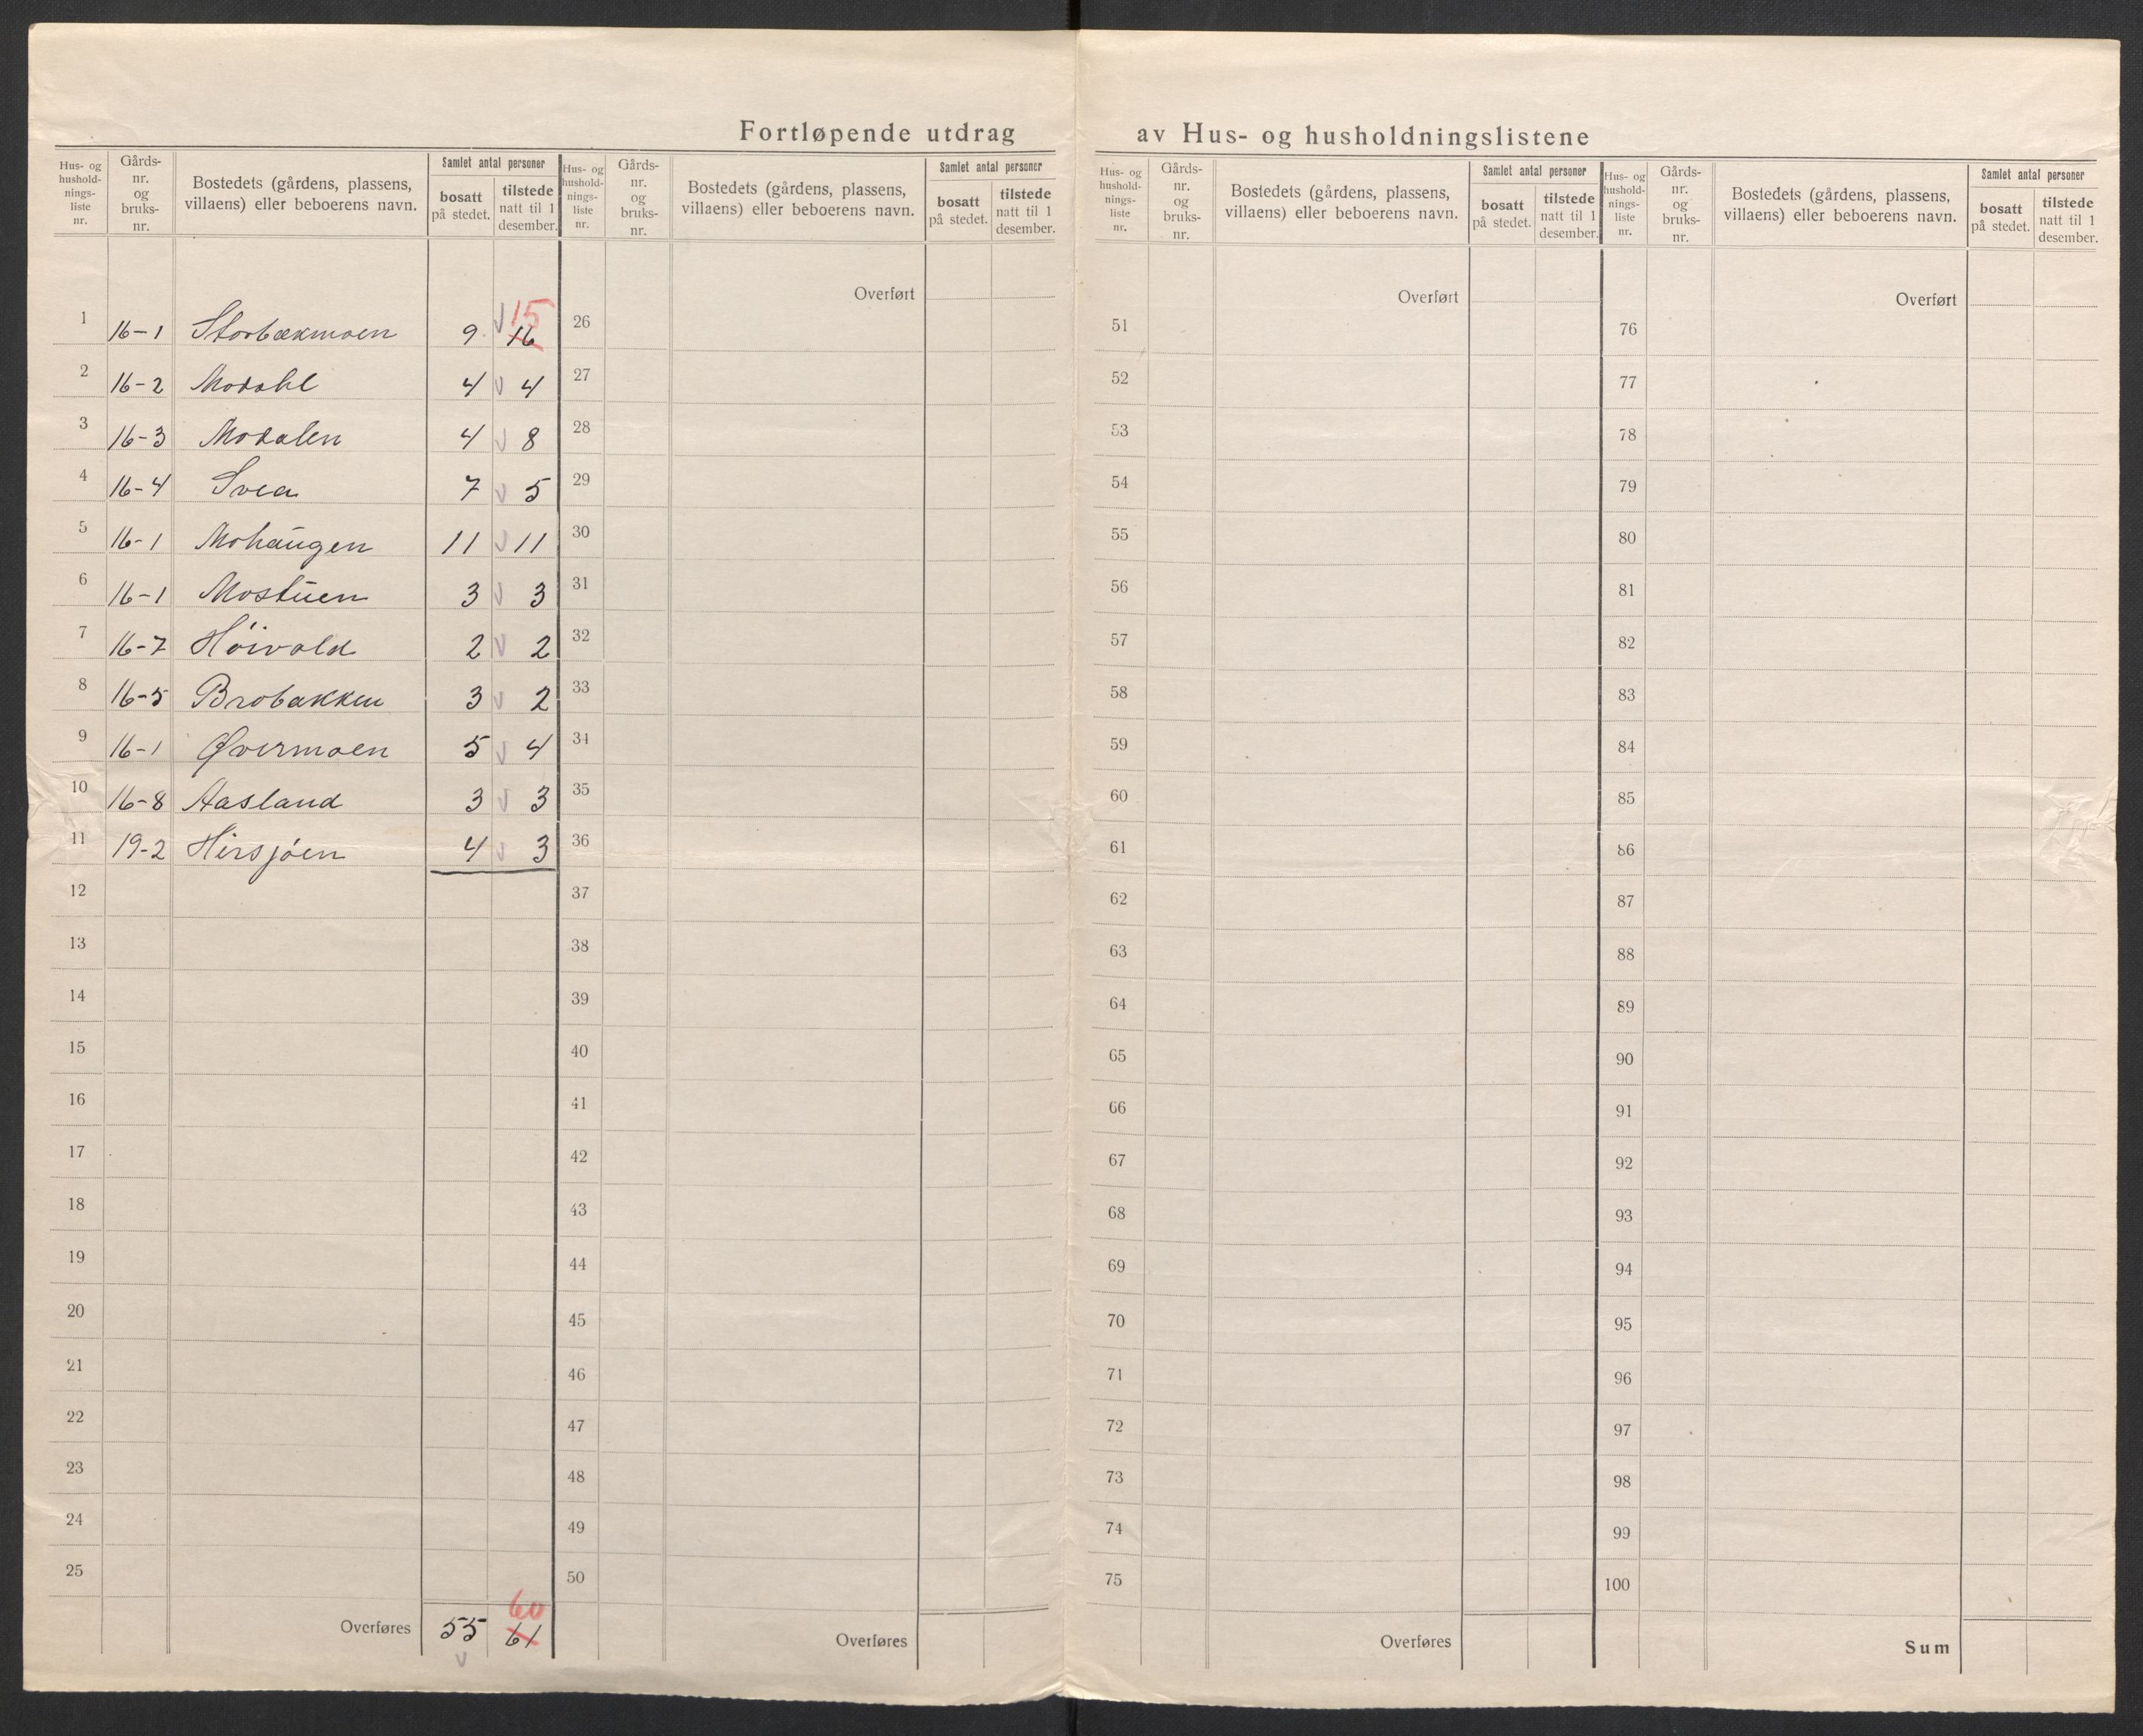 Fortløpende utdrag av Hus- og husholdningslistene
Hus- og husholdnings-liste nr. Gårds-nr. og bruks-nr. Bostedets (gårdens, plassens, villaens) eller beboerens navn. Samlet antal personer bosatt på stedet. tilstede natt til 1 desember.
Hus- og husholdnings-liste nr. Gårds-nr. og bruks-nr. Bostedets (gårdens, plassens, villaens) eller beboerens navn. Samlet antal personer bosatt på stedet. tilstede natt til 1 desember.
Hus- og husholdnings-liste nr. Gårds-nr. og bruks-nr. Bostedets (gårdens, plassens, villaens) eller beboerens navn. Samlet antal personer bosatt på stedet. tilstede natt til 1 desember.
Hus- og husholdnings-liste nr. Gårds-nr. og bruks-nr. Bostedets (gårdens, plassens, villaens) eller beboerens navn. Samlet antal personer bosatt på stedet. tilstede natt til 1 desember.
1 16-1 Storbækmoen 9 v 15 16
2 16-2 Modahl 4 v 4
3 16-3 Modalen 4 v 8
4 16-4 Svea 7 v 5
5 16-1 Mohaugen 11 v 11
6 16-1 Mostuen 3 v 3
7 16-7 Høivold 2 v 2
8 16-5 Brobakken 3 v 2
9 16-1 Øvermoen 5 v 4
10 16-8 Aasland 3 v 3
11 19-2 Hirsjøen 4 v 3
12
13
14
15
16
17
18
19
20
21
22
23
24
25
Overføres 55 v 60 61
Overført
26
27
28
29
30
31
32
33
34
35
36
37
38
39
40
41
42
43
44
45
46
47
48
49
50
Overføres
Overført
51
52
53
54
55
56
57
58
59
60
61
62
63
64
65
66
67
68
69
70
71
72
73
74
75
Overføres
Overført
76
77
78
79
80
81
82
83
84
85
86
87
88
89
90
91
92
93
94
95
96
97
98
99
100
Sum